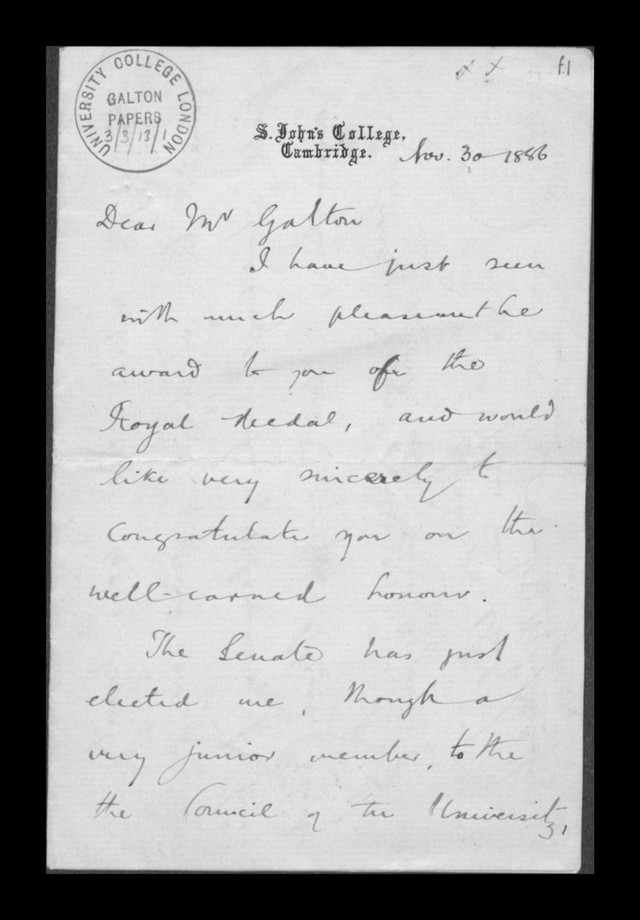 UNIVERSITY COLLEGE LONDON
GALTON
PAPERS
3/3/13/1
x x
f1
S. John's College,
Cambridge.
Nov. 30 1886
Dear Mr Galton
I have just seen
with much pleasure the
award to you of the
Royal Medal, and would
like very sincerely to
congratulate you on the
well-earned honour.
The Senate has just
elected me, though a
very junior member, to the
the Council of the University